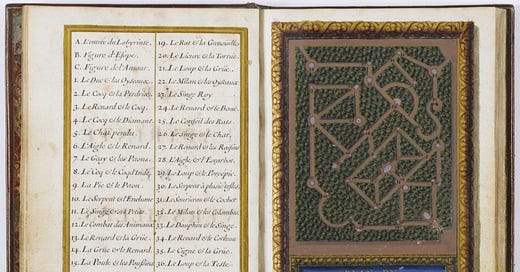 A. L'entrée du Labyrinte.
B. Figure d'Esope.
C. Figure de l'Amour.
1. Le Duc & les Oyseaux.
2. Le Cocq & la Perdrix.
3. Le Renard & le Cocq.
4. Le Cocq & le Diamant.
5. Le Chat pendu.
6. L'Aigle & le Renard.
7. Le Geay & les Paons.
8. Le Cocq & le Cocq d'Inde
9. La Pie & le Paon.
10. Le Serpent & l'Enclume
11. Le Singe & ses Petits.
12. Le Combat des Animaux
13. Le Renard & la Grüe.
14. La Grüe & le Renard.
15. La Poule & les Poussins
19. Le Rat & la Grenouille
20. Le Lieure & la Tortue
21. Le Loup & la Grüe.
22. Le Milan & les Oyseaux
23. Le Singe Roy.
24. Le Renard & le Bouc.
25. Le Conseil des Rats.
26. Le Singe & le Chat,
27. Le Renard & les Raisins
28. L'Aigle & l'Escarbot
29. Le Loup & le Porcépic
30. Le Serpent à plusie. testes.
31. La Souris & le Cochet
32. Le Milan & les Colombes
33. Le Dauphin & le Singe.
34. Le Renard & le Corbeau
35. Le Cigne & la Grüe.
36. Le Loup & la Teste